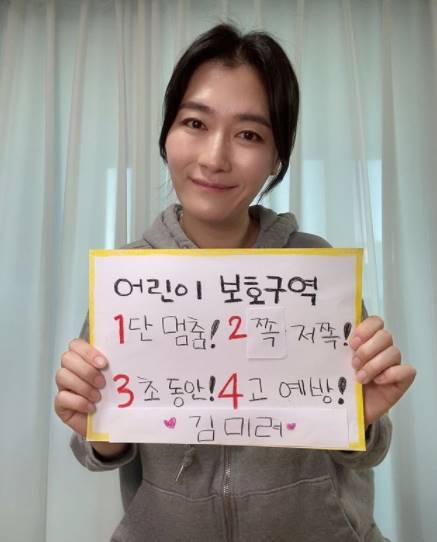 어린이 보호구역
1단 멈춤! 2쪽 저쪽!
3초 동안! 4고 예방!
김미려